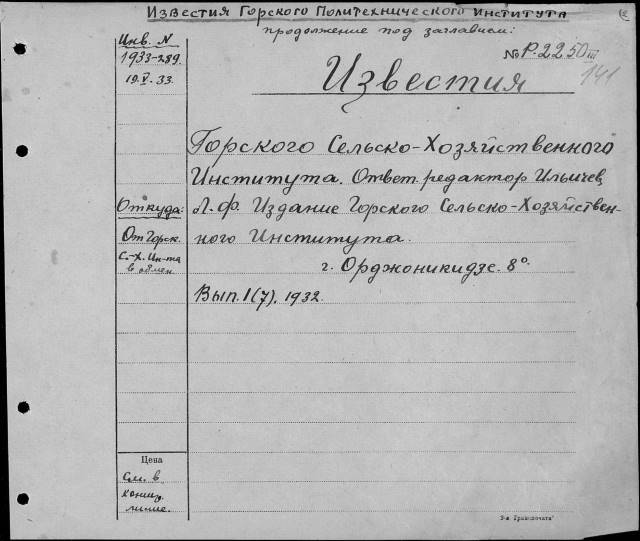 Известия Горского Политехнического Института
продолжение под заглавием:
Инв. N
1933-289.
19.V.33.
№ Р.2250 III
141
Известия
Горского Сельско-Хозяйственного
Института. Ответ. редактор Ильичев,
Л. Ф. Издание Горского Сельско-Хозяйствен-
ного Института.
г. Орджоникидзе. 8°.
Вып. 1(7), 1932.
Откуда:
От Горск.
С.-Х. Ин-та
в обмен.
Цена
См. в